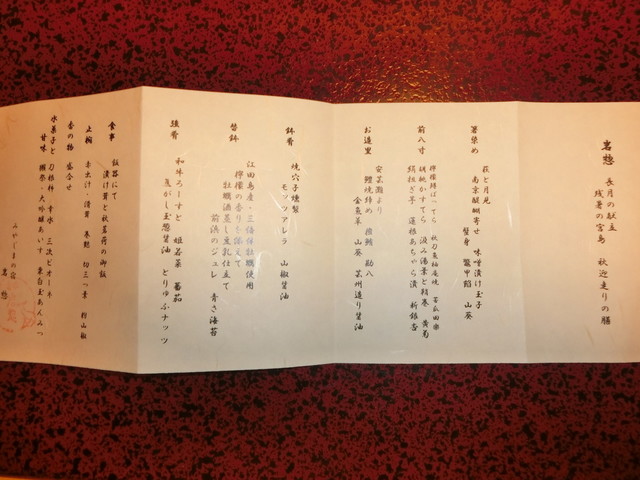 岩惣 長月の献立
残暑の宮島 秋迎走りの膳
箸染め
萩と月見 味噌漬け玉子
南京醍醐寄せ 蟹身 鼈甲餡 山葵
前八寸
汲み湯葉と鞘巻 黄菊
絹担ぎ芋 蓮根あちゃら漬 新銀杏
お造里
安芸灘より
鱧焼き締め 鮪 勘八
金魚草 山葵 芸州造り醤油
鉢肴
焼穴子燻製
モッツアレラ 山椒醤油
替鉢
江田島産・三倍体牡蠣使用
檸檬の香りを添えて
牡蠣酒蒸し豆乳仕立て
前浜のジュレ 青さ海苔
強肴
和牛ろーすと 姫若菜 蕃茄
焦がし玉葱醤油 とりゅふナッツ
食事
飯器にて
漬け茸と秋茗荷の御飯
止椀
赤出汁・清茸 巻麩 切三つ葉 粉山椒
香の物 盛合せ
水菓子と甘味
刀根柿 幸水 三次ピオーネ
獺祭・大吟醸あいす 葉白玉あんみつ
みやじまの宿
岩惣